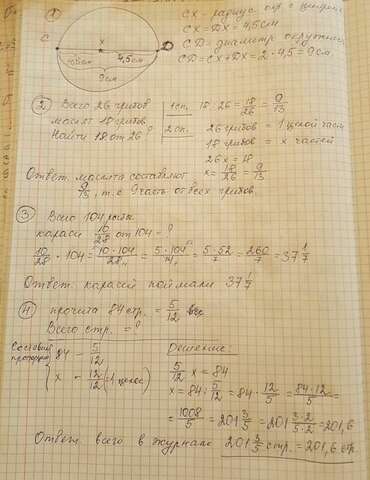 ① CX - радиус окр. с центром
CX = DX = 4,5см
CD = диаметр окружнос
CD = CX + DX = 2 · 4,5 = 9см.
C x D
4,5см
9см
② Всего 26 грибов
маслят 18 грибов
Найти 18 от 26?
1сп. 18 : 26 = 18/26 = 9/13
2сп. 26 грибов = 1 целой части
18 грибов = x частей
26x = 18
x = 18/26 = 9/13
Ответ: маслята составляют
9/13, т.е. 9 часть от всех грибов.
③ Всего 104 рыбы.
караси 10/28 от 104 = ?
10/28 · 104 = 10 · 104/28 = 5 · 104/14 = 5 · 52/7 = 260/7 = 37 1/7
Ответ: карасей поймали 37 1/7
④ прочита 84 стр. = 5/12 все
Всего стр. = ?
Составим пропорц
84 - 5/12
x - 12/12 (=1 целое)
Решение:
5/12 x = 84
x = 84 : 5/12 = 84 · 12/5 = 84 · 12/5 =
= 1008/5 = 201 3/5 = 201 3·2/5·2 = 201,6
Ответ: всего в журнале 201 3/5 стр. = 201,6 стр.